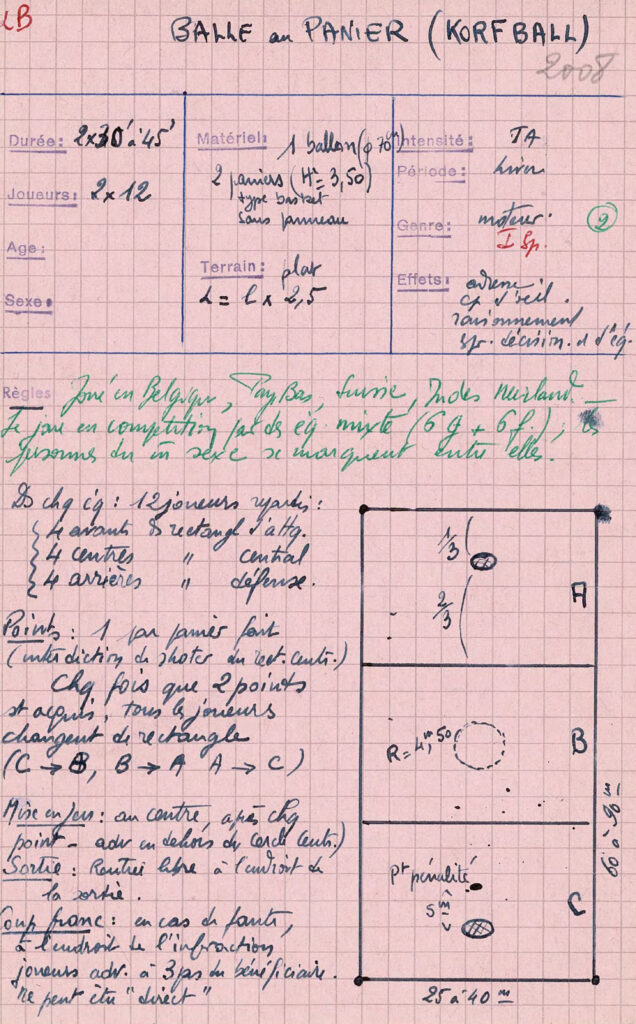 LB
BALLE au PANIER (KORFBALL)
2008
Durée: 2x30' à 45'
Joueurs: 2 x 12
Age:
Sexe:
Matériel: 1 ballon (φ 70 cm)
2 paniers (Hr = 3,50)
type basket
sans panneau
Terrain: plat
L = l x 2,5
Intensité: TA
Période: hiver
Genre: moteur.
I Sp.
2
Effets: adresse
cp d'œil.
raisonnement
sp. décision. et d'éq.
Règles Joué en Belgique, Pays Bas, Suisse, Indes Neerland. —
Se joue en compétition par des éq. mixte (6 g + 6 f.); les
personnes du m̂ sexe se marquent entre elles.
Ds chq éq : 12 joueurs repartis :
4 avants ds rectangl d'attq.
4 centres " central
4 arrières " défense.
Points : 1 par panier fait
(interdiction de shoter du rect. centr.)
Chq fois que 2 points
st acquis, tous les joueurs
changent de rectangle
(C → B, B → A A → C)
Mise en Jeu : au centre, après chq
point - adv en dehors du cercle centr.)
Sortie : Rentrée libre à l'endroit de
la sortie.
Coup franc : en cas de faute,
à l'endroit de l'infraction
joueurs adv. à 3 pas du bénéficiaire.
ne peut être "direct"
1/3
2/3
A
R = 4m,50
B
pt pénalité
5 m
C
60 à 90 m
25 à 40 m